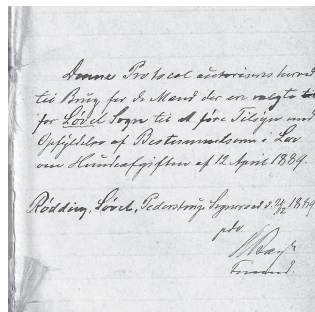 Denne Protocol autoriseres herved
til Brug for de Mænd der er valgte til
for Løvel Sogn til at føre Tilsyn med
Opfyldelse af Bestemmelserne i Lov
om Hundeafgiften af 12 April 1889.
Rødding, Løvel, Pederstrup Sogneraad d. 24/12 1889
pdv
Formand